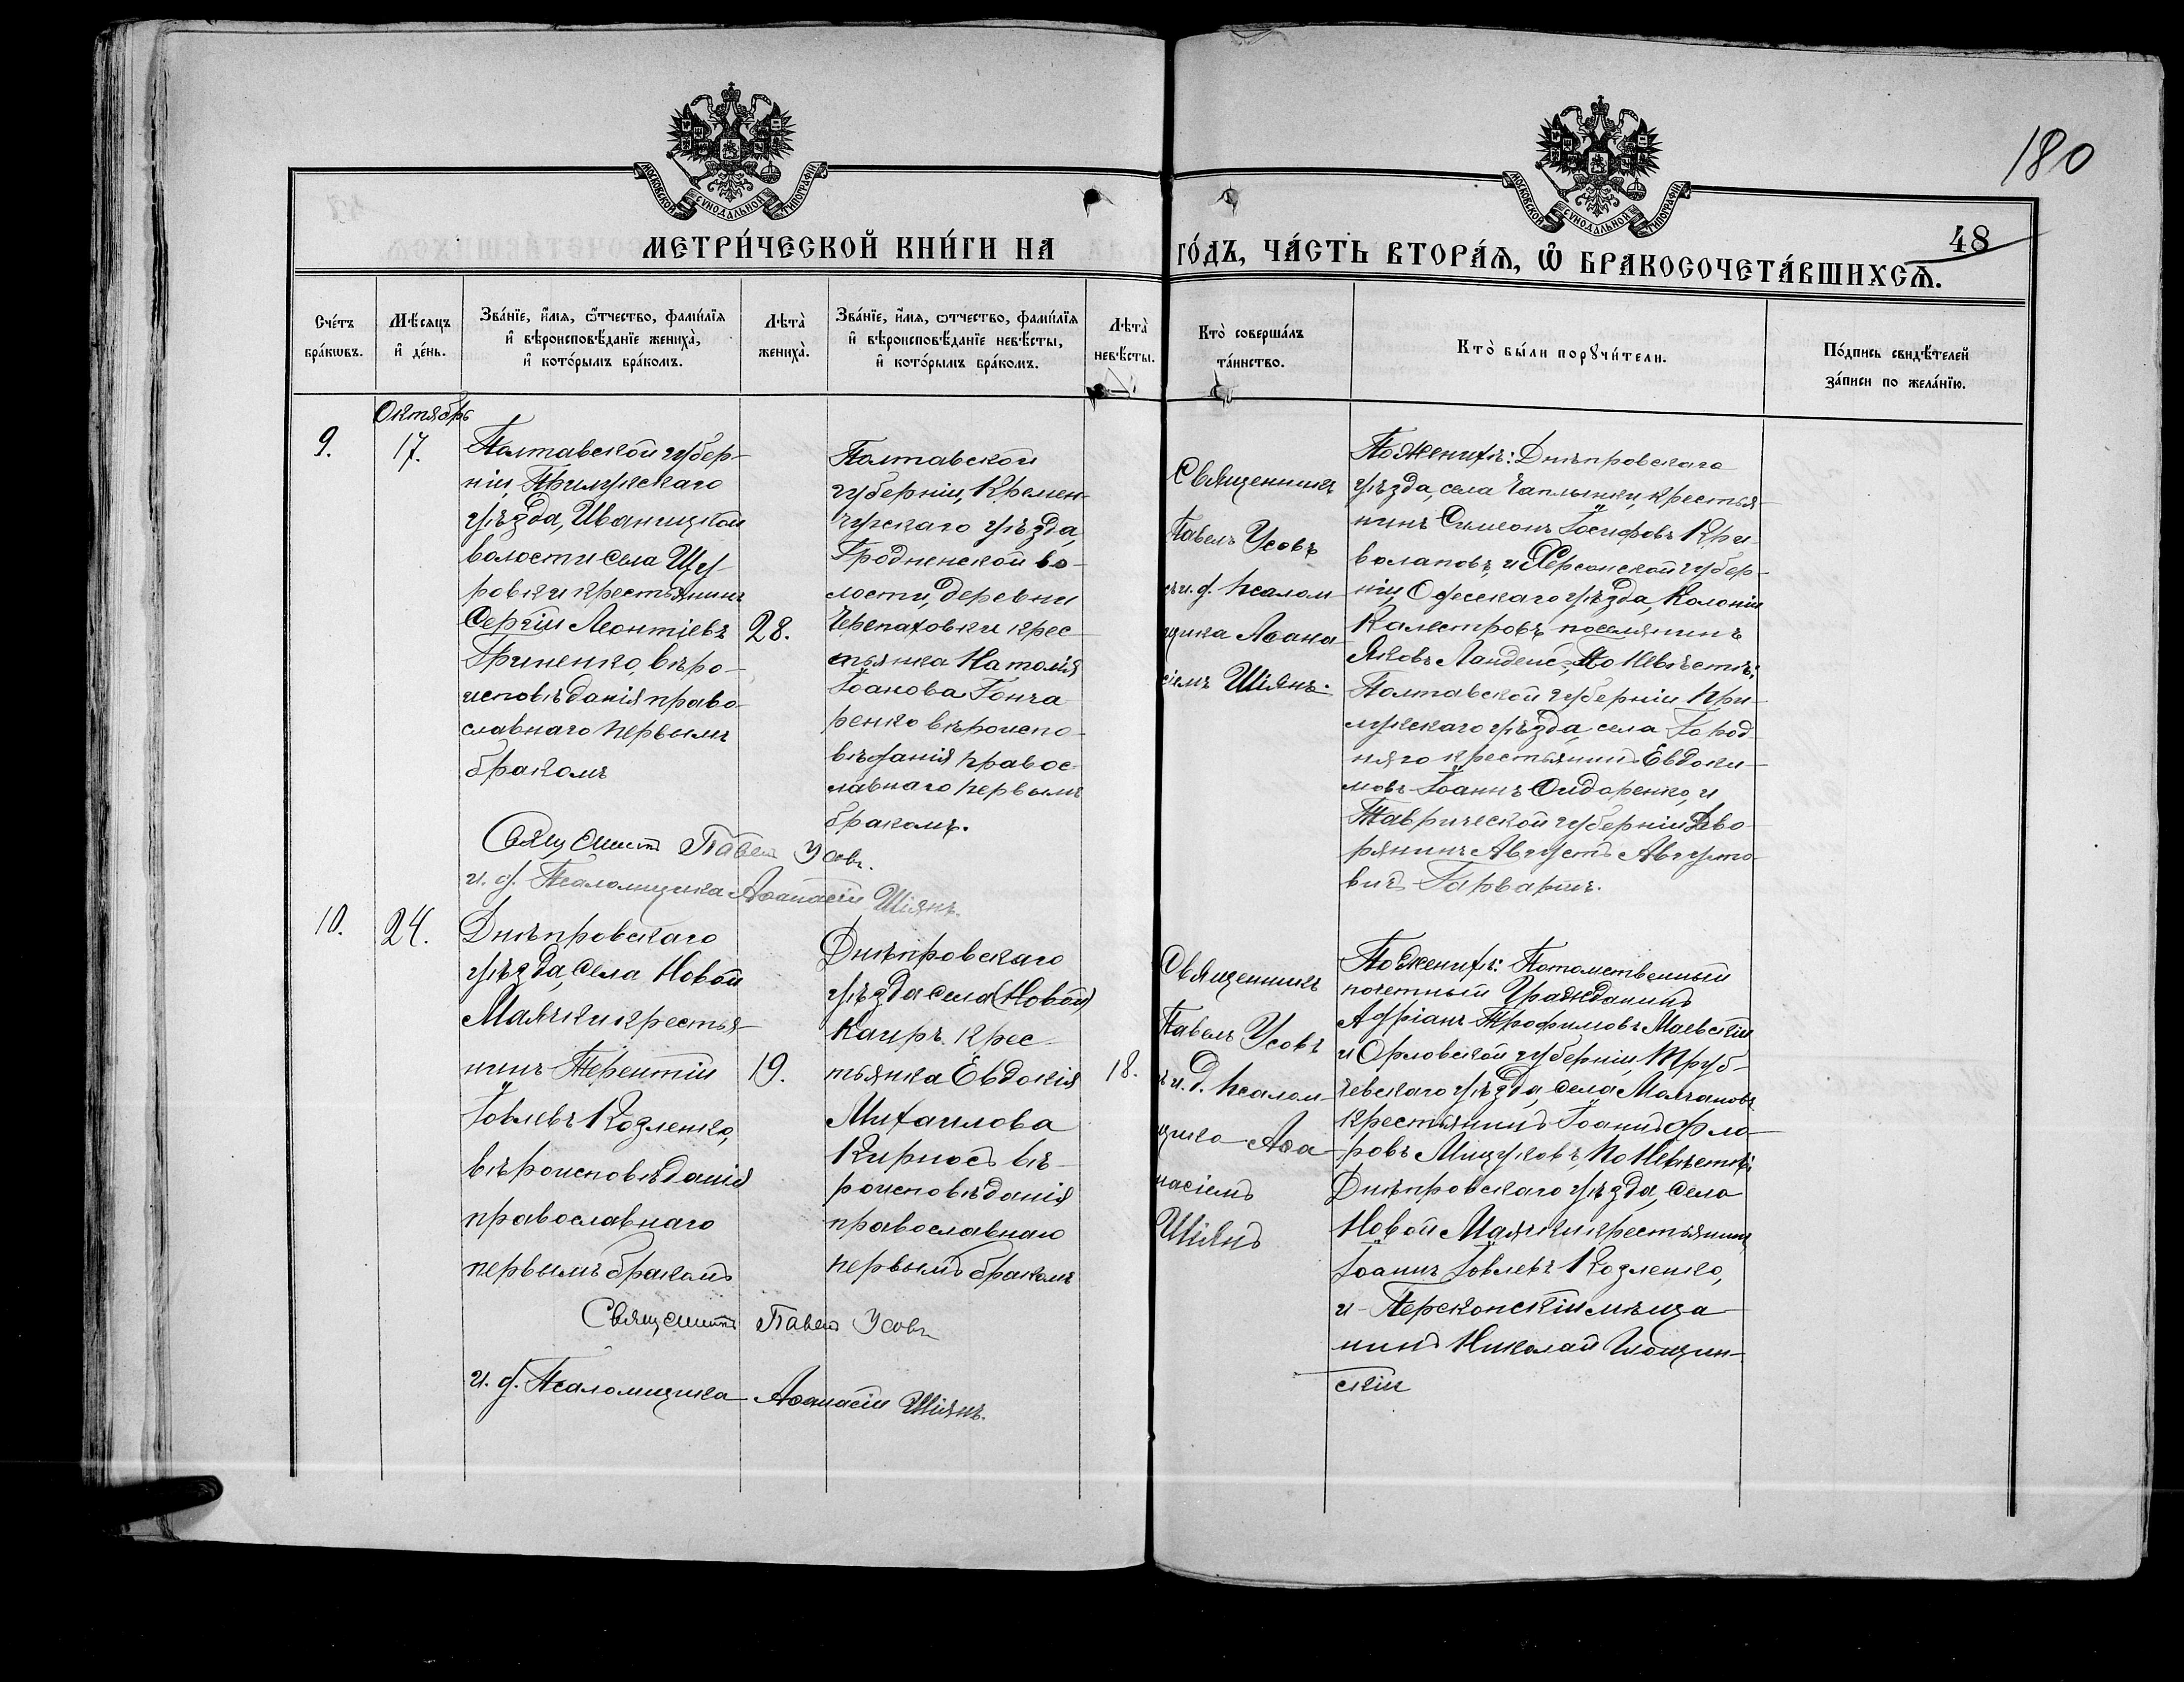 180
48
МОСКОВСКОЙ СѴНОДАЛЬНОЙ ТИПОГРАФІИ
МОСКОВСКОЙ СѴНОДАЛЬНОЙ ТИПОГРАФІИ
МЕТРИ́ЧЕСКОЙ КНИ́ГИ НА ГО́ДЪ, ЧА́СТЬ ВТОРА́Ѧ, Ѽ БРАКОСОЧЕТА́ВШИХСѦ.
Сче́тъ
бра́кѡвъ.
Мѣ́сѧцъ
и҆ де́нь.
Зва́нїе, и҆́мѧ, ѻ҆́тчество, фами́лїѧ
и҆ вѣроисповѣ́данїе жениха̀,
и҆ кото́рымъ бра́комъ.
Лѣта̀
жениха̀.
Зва́нїе, и҆́мѧ, ѻтчество, фами́лїѧ
и҆ вѣроисповѣ́данїе невѣ́сты,
и҆ кото́рымъ бра́комъ.
Лѣта̀
невѣ́сты.
Кто̀ соверша́лъ
та́инство.
Кто̀ бы́ли порꙋчи́тели.
По́дпись свидѣ́телей
за́писи по жела́нїю.
Октябрь
9.
17.
Полтавской губер-
ніи, Прилукскаго
уѣзда, Иваницкой
волости села Щу-
ровки крестьянинъ
Сергій Леонтіевъ
Гриненко, вѣро-
исповѣданія право-
славнаго первымъ
бракомъ
28.
Полтавской
губерніи, Кремен-
чугскаго уѣзда,
Гродненской во-
лости, деревни
Черепаховки крес-
тьянка Наталія
Іоанова Гонча
ренко вѣроиспо-
вѣданія правос-
лавнаго первымъ
бракомъ.
Священникъ
Павелъ Усовъ
съ и. д. псалом-
щика Аѳана-
сіемъ Шіянъ.
По Женихѣ: Днѣпровскаго
уѣзда, села Чаплынки, крестья-
нинъ Симеонъ Іосифовъ Кри-
волаповъ, и Херсонской губер-
ніи, Одесскаго уѣзда, Колоніи
поселянинъ
Яковъ По Невѣстѣ:
Полтавской губерніи При-
лукскаго уѣзда, села Город-
няго крестьянинъ Евдоки-
мовъ Іоаннъ Сидоренко, и
Таврической губерніи Дво-
рянинъ Августъ Августо-
вичъ
Священникъ Павелъ Усовъ.
и. д. Псаломщика Аѳанасій Шіянъ.
10.
24.
Днѣпровскаго
уѣзда, села Новой
Маячки крестья-
нинъ Терентій
Іовлевъ Козленко,
вѣроисповѣданія
православнаго
первымъ бракомъ
19.
Днѣпровскаго
уѣзда села (Новой)
Каиръ крес-
тьянка Евдокія
Михаилова
Кирносъ вѣ-
роисповѣданія
православнаго
первымъ бракомъ
18.
Священникъ
Павелъ Усовъ
съ и. д. псалом-
щика Аѳа-
насіемъ
Шіянъ
По Женихѣ: Потомственный
почетный Гражданинъ
Адріанъ Трофимовъ Маевскій
и Орловской губерніи, Труб-
чевскаго уѣзда, села Молчановъ
крестьянинъ Іоаннъ Фло-
ровъ Мищуковъ, По Невѣстѣ:
Днѣпровскаго уѣзда, села
Новой Маячки крестьянинъ
Іоаннъ Іовлевъ Козленко,
и Перекопскій мѣща-
нинъ Николай
скій
Священникъ Павелъ Усовъ
и. д. Псаломщика Аѳанасій Шіянъ.